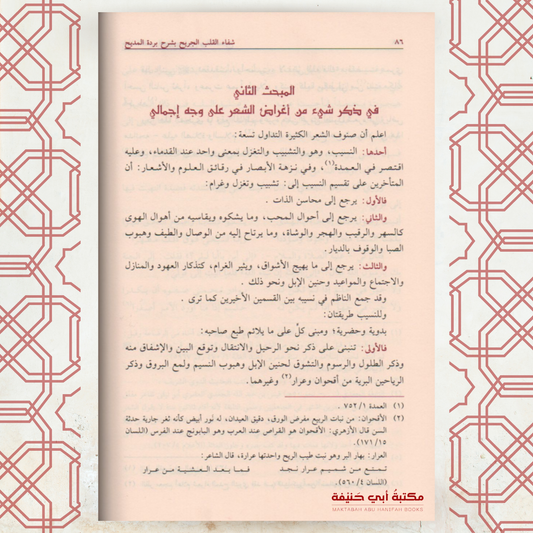 ٨٦
شفاء القلب الجريح بشرح بردة المديح
المبحث الثاني
في ذكر شيء من أغراض الشعر على وجه إجمالي
اعلم أن صنوف الشعر الكثيرة التداول تسعة:
أحدها: النسيب، وهو والتشبيب والتغزل بمعنى واحد عند القدماء، وعليه
اقتصر في العمدة(١)، وفي نزهة الأبصار في رقائق العلوم والأشعار: أن
المتأخرين على تقسيم النسيب إلى: تشبيب وتغزل وغرام:
فالأول: يرجع إلى محاسن الذات .
والثاني: يرجع إلى أحوال المحب، وما يشكوه ويقاسيه من أهوال الهوى
كالسهر والرقيب والهجر والوشاة، وما يرتاح إليه من الوصال والطيف وهبوب
الصبا والوقوف بالديار.
والثالث: يرجع إلى ما يهيج الأشواق، ويثير الغرام، كتذكار العهود والمنازل
والاجتماع والمواعيد وحنين الإبل ونحو ذلك .
وقد جمع الناظم في نسيبه بين القسمين الأخيرين كما ترى .
وللنسيب طريقتان:
بدوية وحضرية؛ ومبنى كلّ على ما يلائم طبع صاحبه:
فالأولى: تنبني على ذكر نحو الرحيل والانتقال وتوقع البين والإشفاق منه
وذكر الطلول والرسوم والتشوق لحنين الإبل وهبوب النسيم ولمع البروق وذكر
الرياحين البرية من أقحوان وعرار(٢) وغيرهما.
(١) العمدة ٧٥٢/١ .
(٢) الأقحوان: من نبات الربيع مفرض الورق، دقيق العيدان، له نور أبيض كأنه ثغر جارية حدثة
السن قال الأزهري: الأقحوان هو القراص عند العرب وهو البابونج عند الفرس (اللسان
١٧١/١٥).
العرار: بهار البر وهو نبت طيب الريح واحدتها عرارة، قال الشاعر:
تمتع من شميم عرار نجد فما بعد العشية من عرار
(اللسان ٥٦٠/٤).
مكتبة أبي حنيفة
MAKTABAH ABU HANIFAH BOOKS